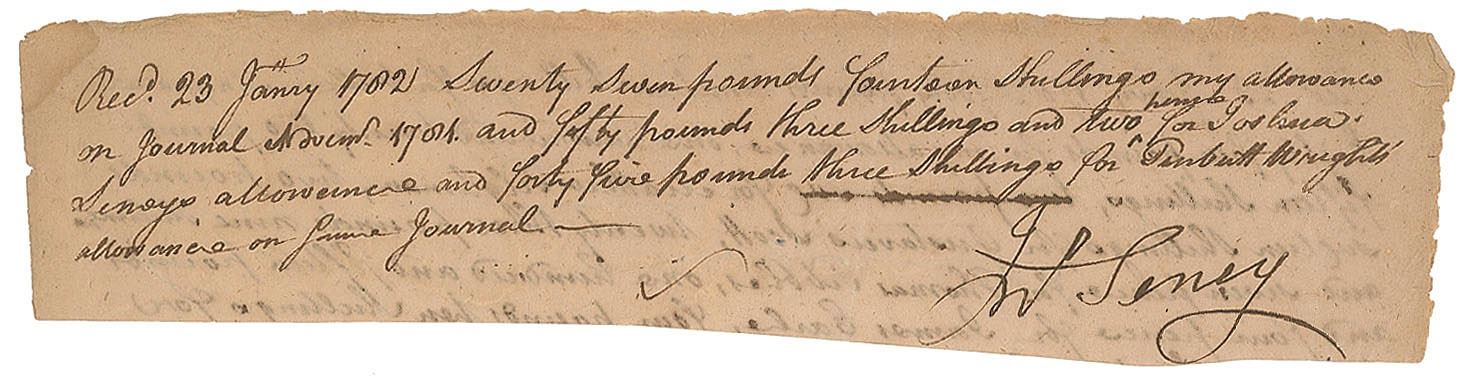 Recd. 23 Janry 1782 Twenty Seven pounds fourteen Shillings my allowance
on Journal Novemr. 1781. and fifty pounds three Shillings and two pence for Joshua
Seneys allowance and forty five pounds three Shillings for Turbutt Wrights
allowance on same Journal.
Jno Seney